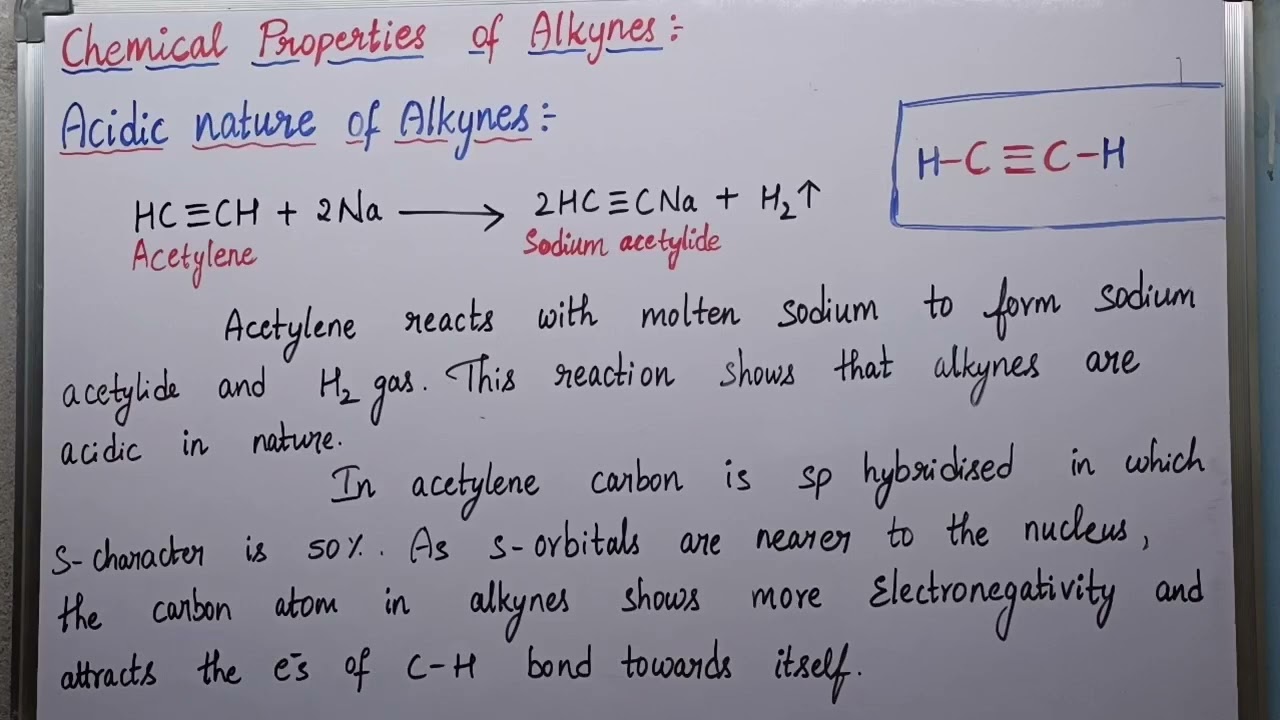 Chemical Properties of Alkynes:-
Acidic nature of Alkynes:-
H-C≡C-H
HC≡CH + 2Na ⟶ 2HC≡CNa + H₂↑
Acetylene Sodium acetylide
Acetylene reacts with molten sodium to form sodium
acetylide and H₂ gas. This reaction shows that alkynes are
acidic in nature.
In acetylene carbon is sp hybridised in which
S-character is 50%. As s-orbitals are nearer to the nucleus,
the carbon atom in alkynes shows more Electronegativity and
attracts the e⁻s of C-H bond towards itself.